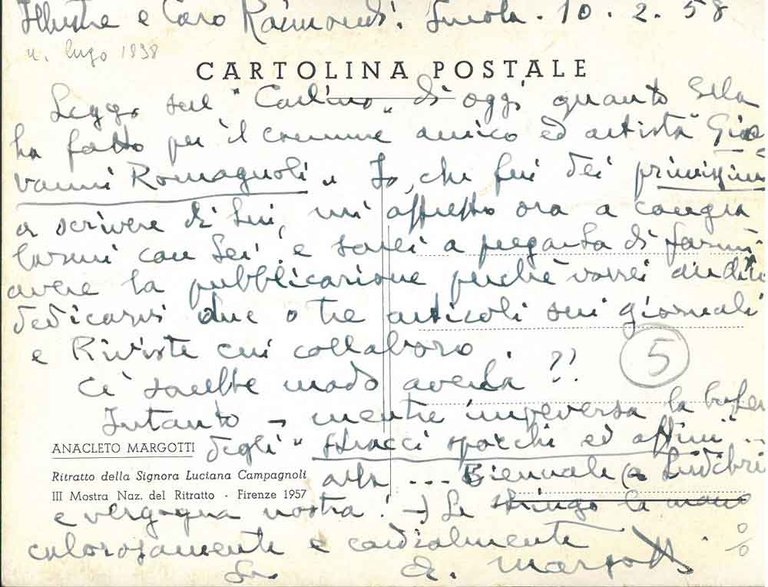 Illustre e Caro Raimondi. Imola. 10.2.58
n. Lugo 1898
CARTOLINA POSTALE
Leggo sul "Carlino" di oggi quanto Ella
ha fatto per il comune amico ed artista "Gio-
vanni Romagnoli". Io, che fui dei primissimi
a scrivere di Lui, mi affretto ora a congra
tularmi con Lei e sarei a pregarLa di farmi
avere la pubblicazione perchè vorrei anch'io
dedicarvi due o tre articoli sui giornali
e Riviste cui collaboro
Ci sarebbe modo averla?!
5
Intanto - mentre imperversa la bufera
ANACLETO MARGOTTI
degli "stracci sporchi ed affini"...
Ritratto della Signora Luciana Campagnoli
alla ... Biennale (a ludibri
III Mostra Naz. del Ritratto - Firenze 1957
e vergogna nostra!) Le stringo la mano
calorosamente e cordialmente
%
Suo A. Margotti